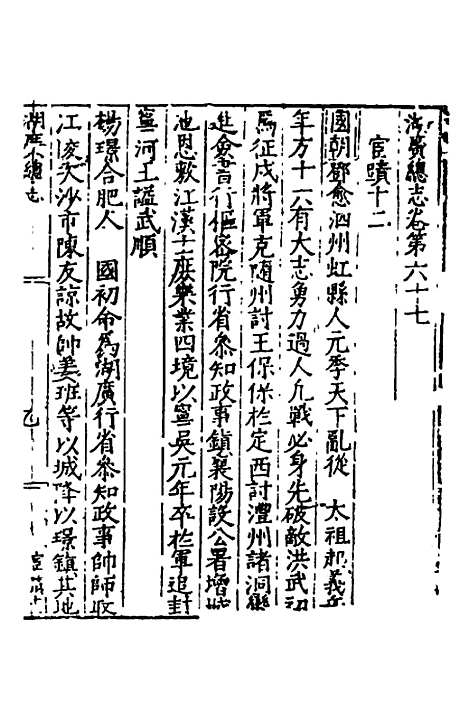 湖廣總志卷第六十七
宦蹟十二
國朝鄧愈泗州虹縣人元季天下亂從 太祖起義兵
年方十六有大志勇力過人凢戰必身先破敵洪武初
爲征戍將軍克随州討王保保於定西討澧州諸洞蠻
進僉行樞密院行省叅知政事鎮襄陽設公署增城
池恩敷江漢士庶樂業四境以寧吳元年卒於軍追封
寧河王謚武順
楊璟合肥人 國初命爲湖廣行省叅知政事帥師取
江陵大沙市陳友諒故帥姜班等以城降以璟鎮其地
湖廣總志
宦蹟十